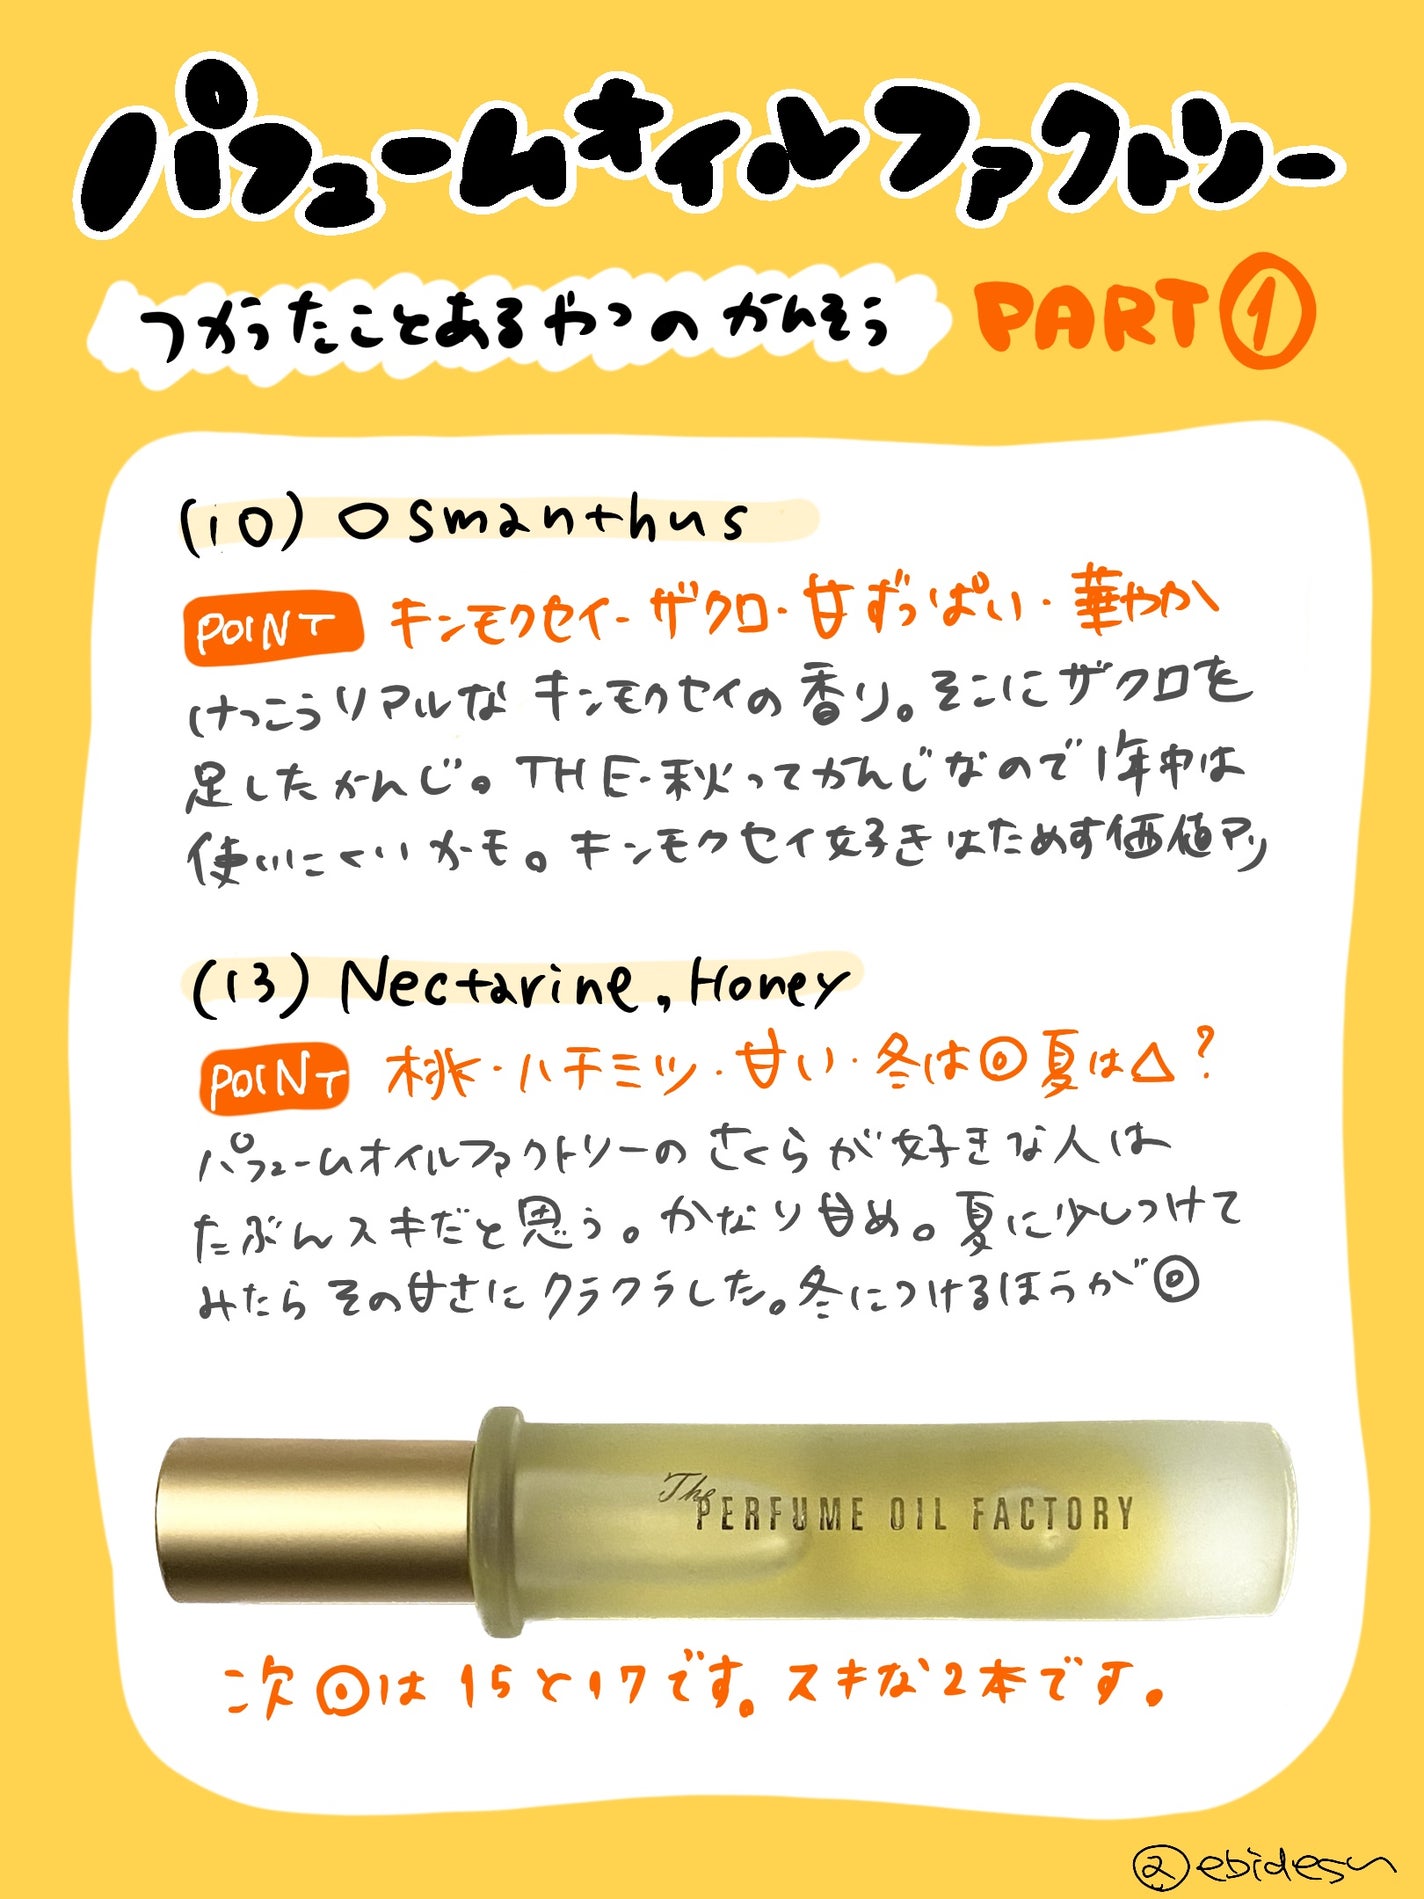 パフュームオイルファクトリー
つかったことあるやつのかんそう PART①
(10) Osmanthus
POINT キンモクセイ・ザクロ・甘ずっぱい・華やか
けっこうリアルなキンモクセイの香り。そこにザクロを
足したかんじ。THE・秋ってかんじなので1年中は
使いにくいかモ。キンモクセイ好きはためす価値アリ
(13) Nectarine, Honey
POINT 桃・ハチミツ・甘い・冬は◎夏は△?
パフュームオイルファクトリーのさくらが好きな人は
たぶんスキだと思う。かなり甘め。夏に少しつけて
みたらその甘さにクラクラした。冬につけるほうが◎
The PERFUME OIL FACTORY
次回は15と17です。スキな2本です。
@ebidesu